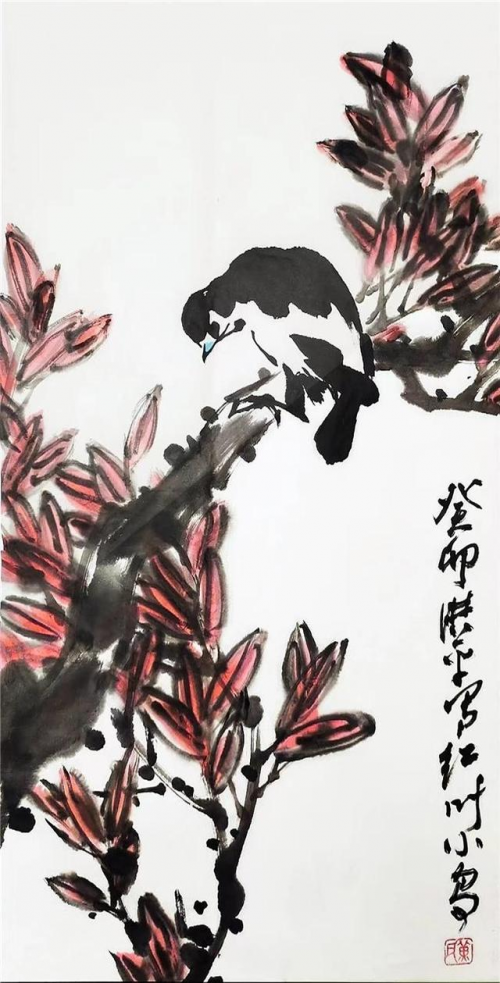 癸卯洪平写红叶小鸟